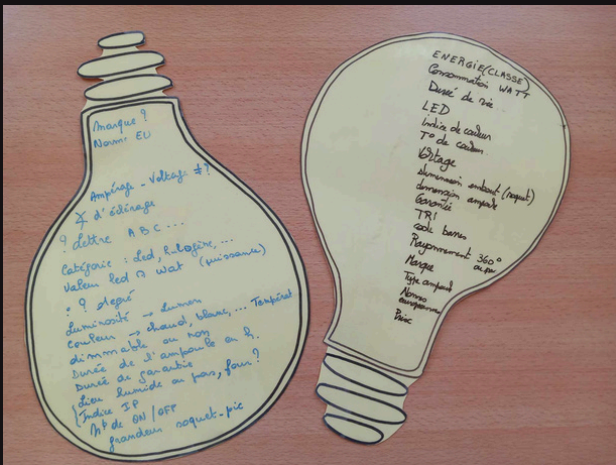 Marque ?
Norme EU
Ampérage - Voltage ≠ ?
d'éclairage
? Lettre A B C ...
Catégorie : Led, halogène, ...
Valeur led Wat (puissance)
: ? degré
Luminosité → Lumen
Couleur → chaud, blanc, ... Températ
dimmable ou non
Durée de l'ampoule en h.
Durée de garantie
Lieu humide ou pas, four ?
Indice IP
Nb de ON/OFF
grandeur soquet - pic
ENERGIE (CLASSE)
Consommation WATT
Durée de vie
LED
indice de couleur
T° de couleur
Voltage
dimension embout (soquet)
dimension ampoule
Garantie
TRI
code barres
Rayonnement 360°
Marque
Type ampoule
Normes
européenne
Prix